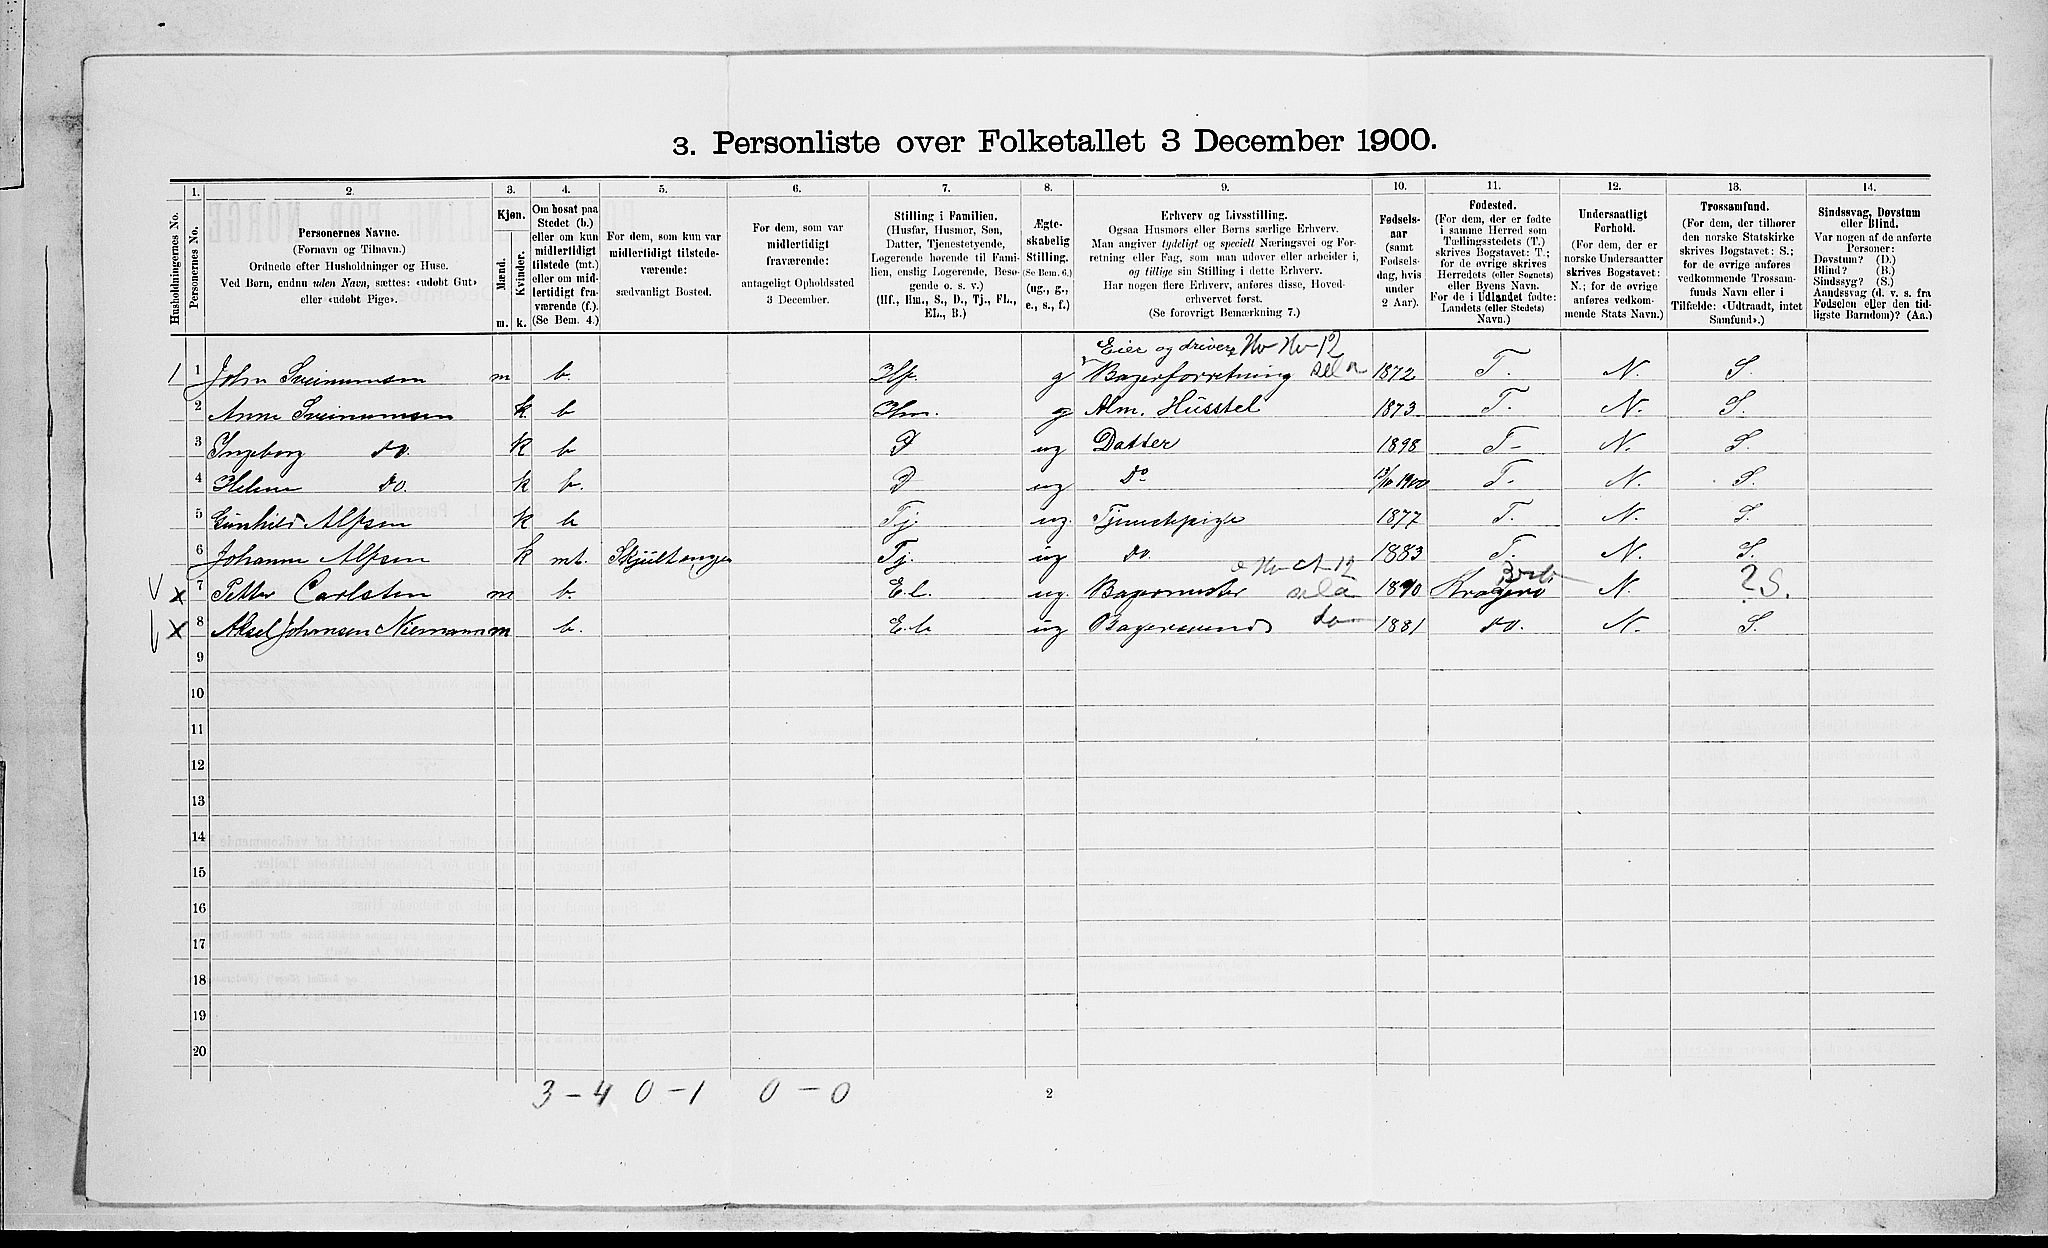 3. Personliste over Folketallet 3 December 1900.
1. 2. 3. 4. 5. 6. 7. 8. 9. 10. 11. 12. 13. 14.
Husholdningernes No.
Personernes No.
Personernes Navne.
(Fornavn og Tilnavn.)
Ordnede efter Husholdninger og Huse.
Ved Børn, endnu uden Navn, sættes: «udøbt Gut»
eller «udøbt Pige».
Kjøn.
Mænd. Kvinder.
m. k.
Om bosat paa
Stedet (b.)
eller om kun
midlertidigt
tilstede (mt.)
eller om mid-
lertidigt fra-
værende (f.).
(Se Bem. 4.)
For dem, som kun var
midlertidigt tilstede-
værende:
sædvanligt Bosted.
For dem, som var
midlertidigt
fraværende:
antageligt Opholdssted
3 December.
Stilling i Familien.
(Husfar, Husmor, Søn,
Datter, Tjenestetyende,
Logerende hørende til Fami-
lien, enslig Logerende, Besø-
gende o. s. v.)
(Hf., Hm., S., D., Tj., FL.,
EL., B.)
Ægte-
skabelig
Stilling.
(Se Bem. 6.)
(ug., g.,
e., s., f.)
Erhverv og Livsstilling.
Ogsaa Husmors eller Børns særlige Erhverv.
Man angiver tydeligt og specielt Næringsvei og For-
retning eller Fag, som man udøver eller arbeider i,
og tillige sin Stilling i dette Erhverv.
Har nogen flere Erhverv, anføres disse, Hoved-
erhvervet først.
(Se forøvrigt Bemærkning 7.)
Fødsels-
aar
(samt
Fødsels-
dag, hvis
under
2 Aar).
Fødested.
(For dem, der er fødte
i samme Herred som
Tællingsstedets (T.)
skrives Bogstavet: T.;
for de øvrige skrives
Herredets (eller Sognets)
eller Byens Navn.
For de i Udlandet fødte:
Landets (eller Stedets)
Navn.)
Undersaatligt
Forhold.
(For dem, der er
norske Undersaatter
skrives Bogstavet:
N.; for de øvrige
anføres vedkom-
mende Stats Navn.)
Trossamfund.
(For dem, der tilhører
den norske Statskirke
skrives Bogstavet: S.;
for de øvrige anføres
vedkommende Trossam-
funds Navn eller i
Tilfælde: «Udtraadt, intet
Samfund».)
Sindssvag, Døvstum
eller Blind.
Var nogen af de anførte
Personer:
Døvstum? (D.)
Blind? (B.)
Sindssyg? (S.)
Aandssvag (d. v. s. fra
Fødselen eller den tid-
ligste Barndom)? (Aa.)
Eier og driver
1 1 John Sveinumsen m b. Hf. g Bagerforretning 1872 T. N. S.
2 Anne Sveinumsen k. b Hm. g Alm. Husstel 1873 T. N. S.
3 Ingeborg do. k b D ug Datter 1898 T- N. S.
4 Helene do. k b. D ug do 1900 T- N. S.
5 Gunhild Alfsen k b Tj. ug. Tjenestepige 1877 T. N. S.
6 Johanne Alfsen k mt. Tj. ug do. 1883 T. N. S.
x 7 Petter Carlsten m b. E.l. ug. Bagermester Kragerø N. ? S.
x 8 Aksel Johansen Niemann m b. E.l. ug Bagersvend do 1881 do. N. S.
9
10
11
12
13
14
15
16
17
18
19
20
3 - 4 0 - 1 0 - 0
2